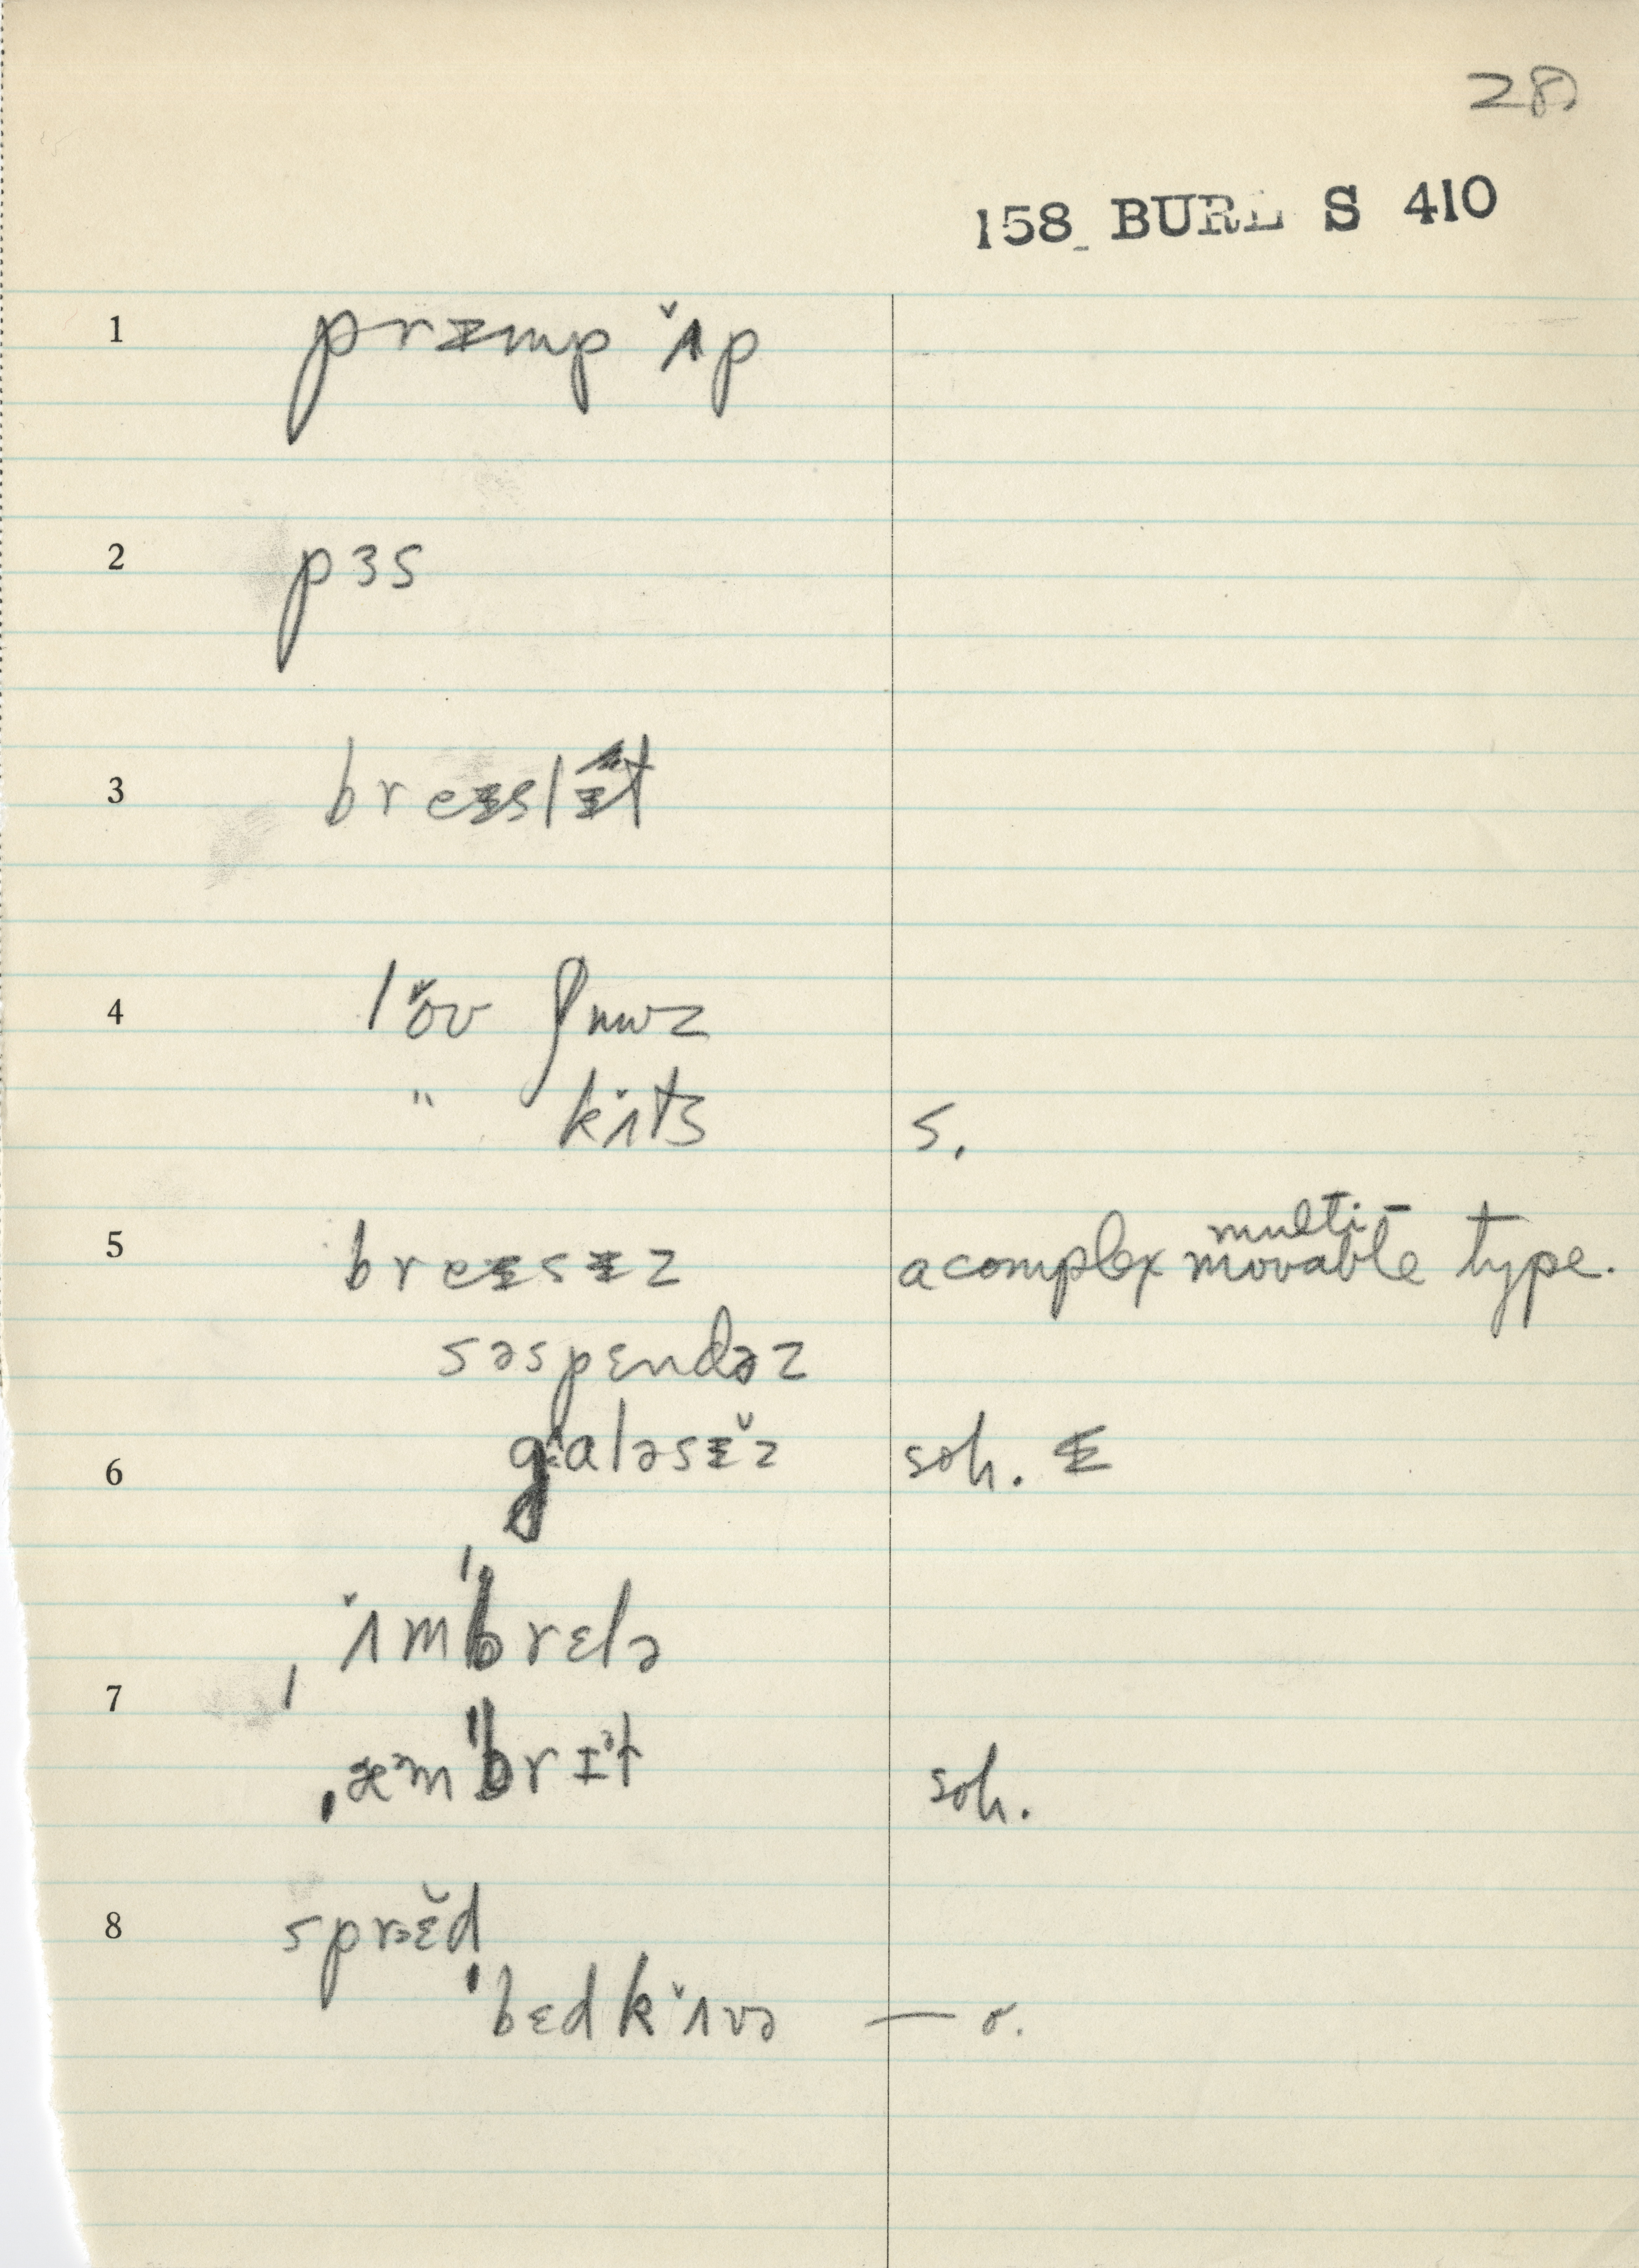 28
158 BURL S 410
1 prɪmp ʌ̌p
2 pɜs
3 breɪslɪt
4 lɔ̌v
" kʌ̌ts s.
5 breɪsɪz a complex multi- movable type.
səspɛndəz
6 galəsɪ̌z soh. ɪ
ˌʌ̌mˈbrɛlə
7
ˌæmˈbrɪt soh.
8 sprɛ̌d
ˈbɛdkʌ̌və — r.